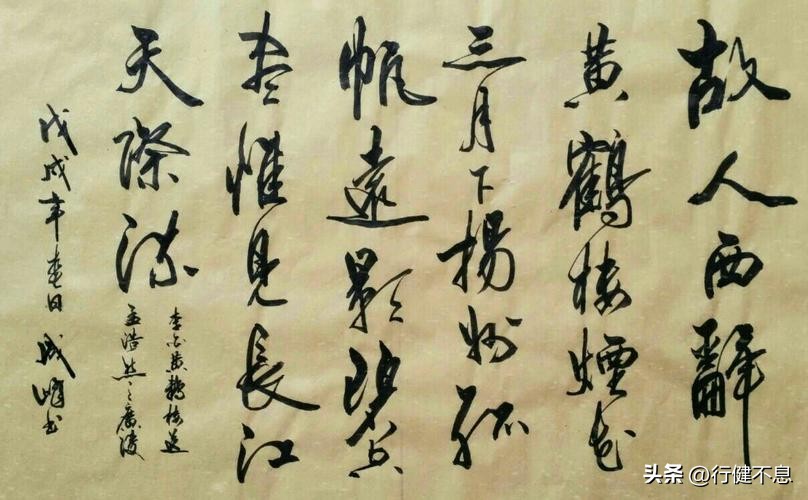 故人西辭
黄鶴楼煙花
三月下揚州孤
帆遠影碧空
盡惟見長江
天際流
李白黄鶴楼送
孟浩然之廣陵
戊戌年春日成峰书
头条 @行健不息